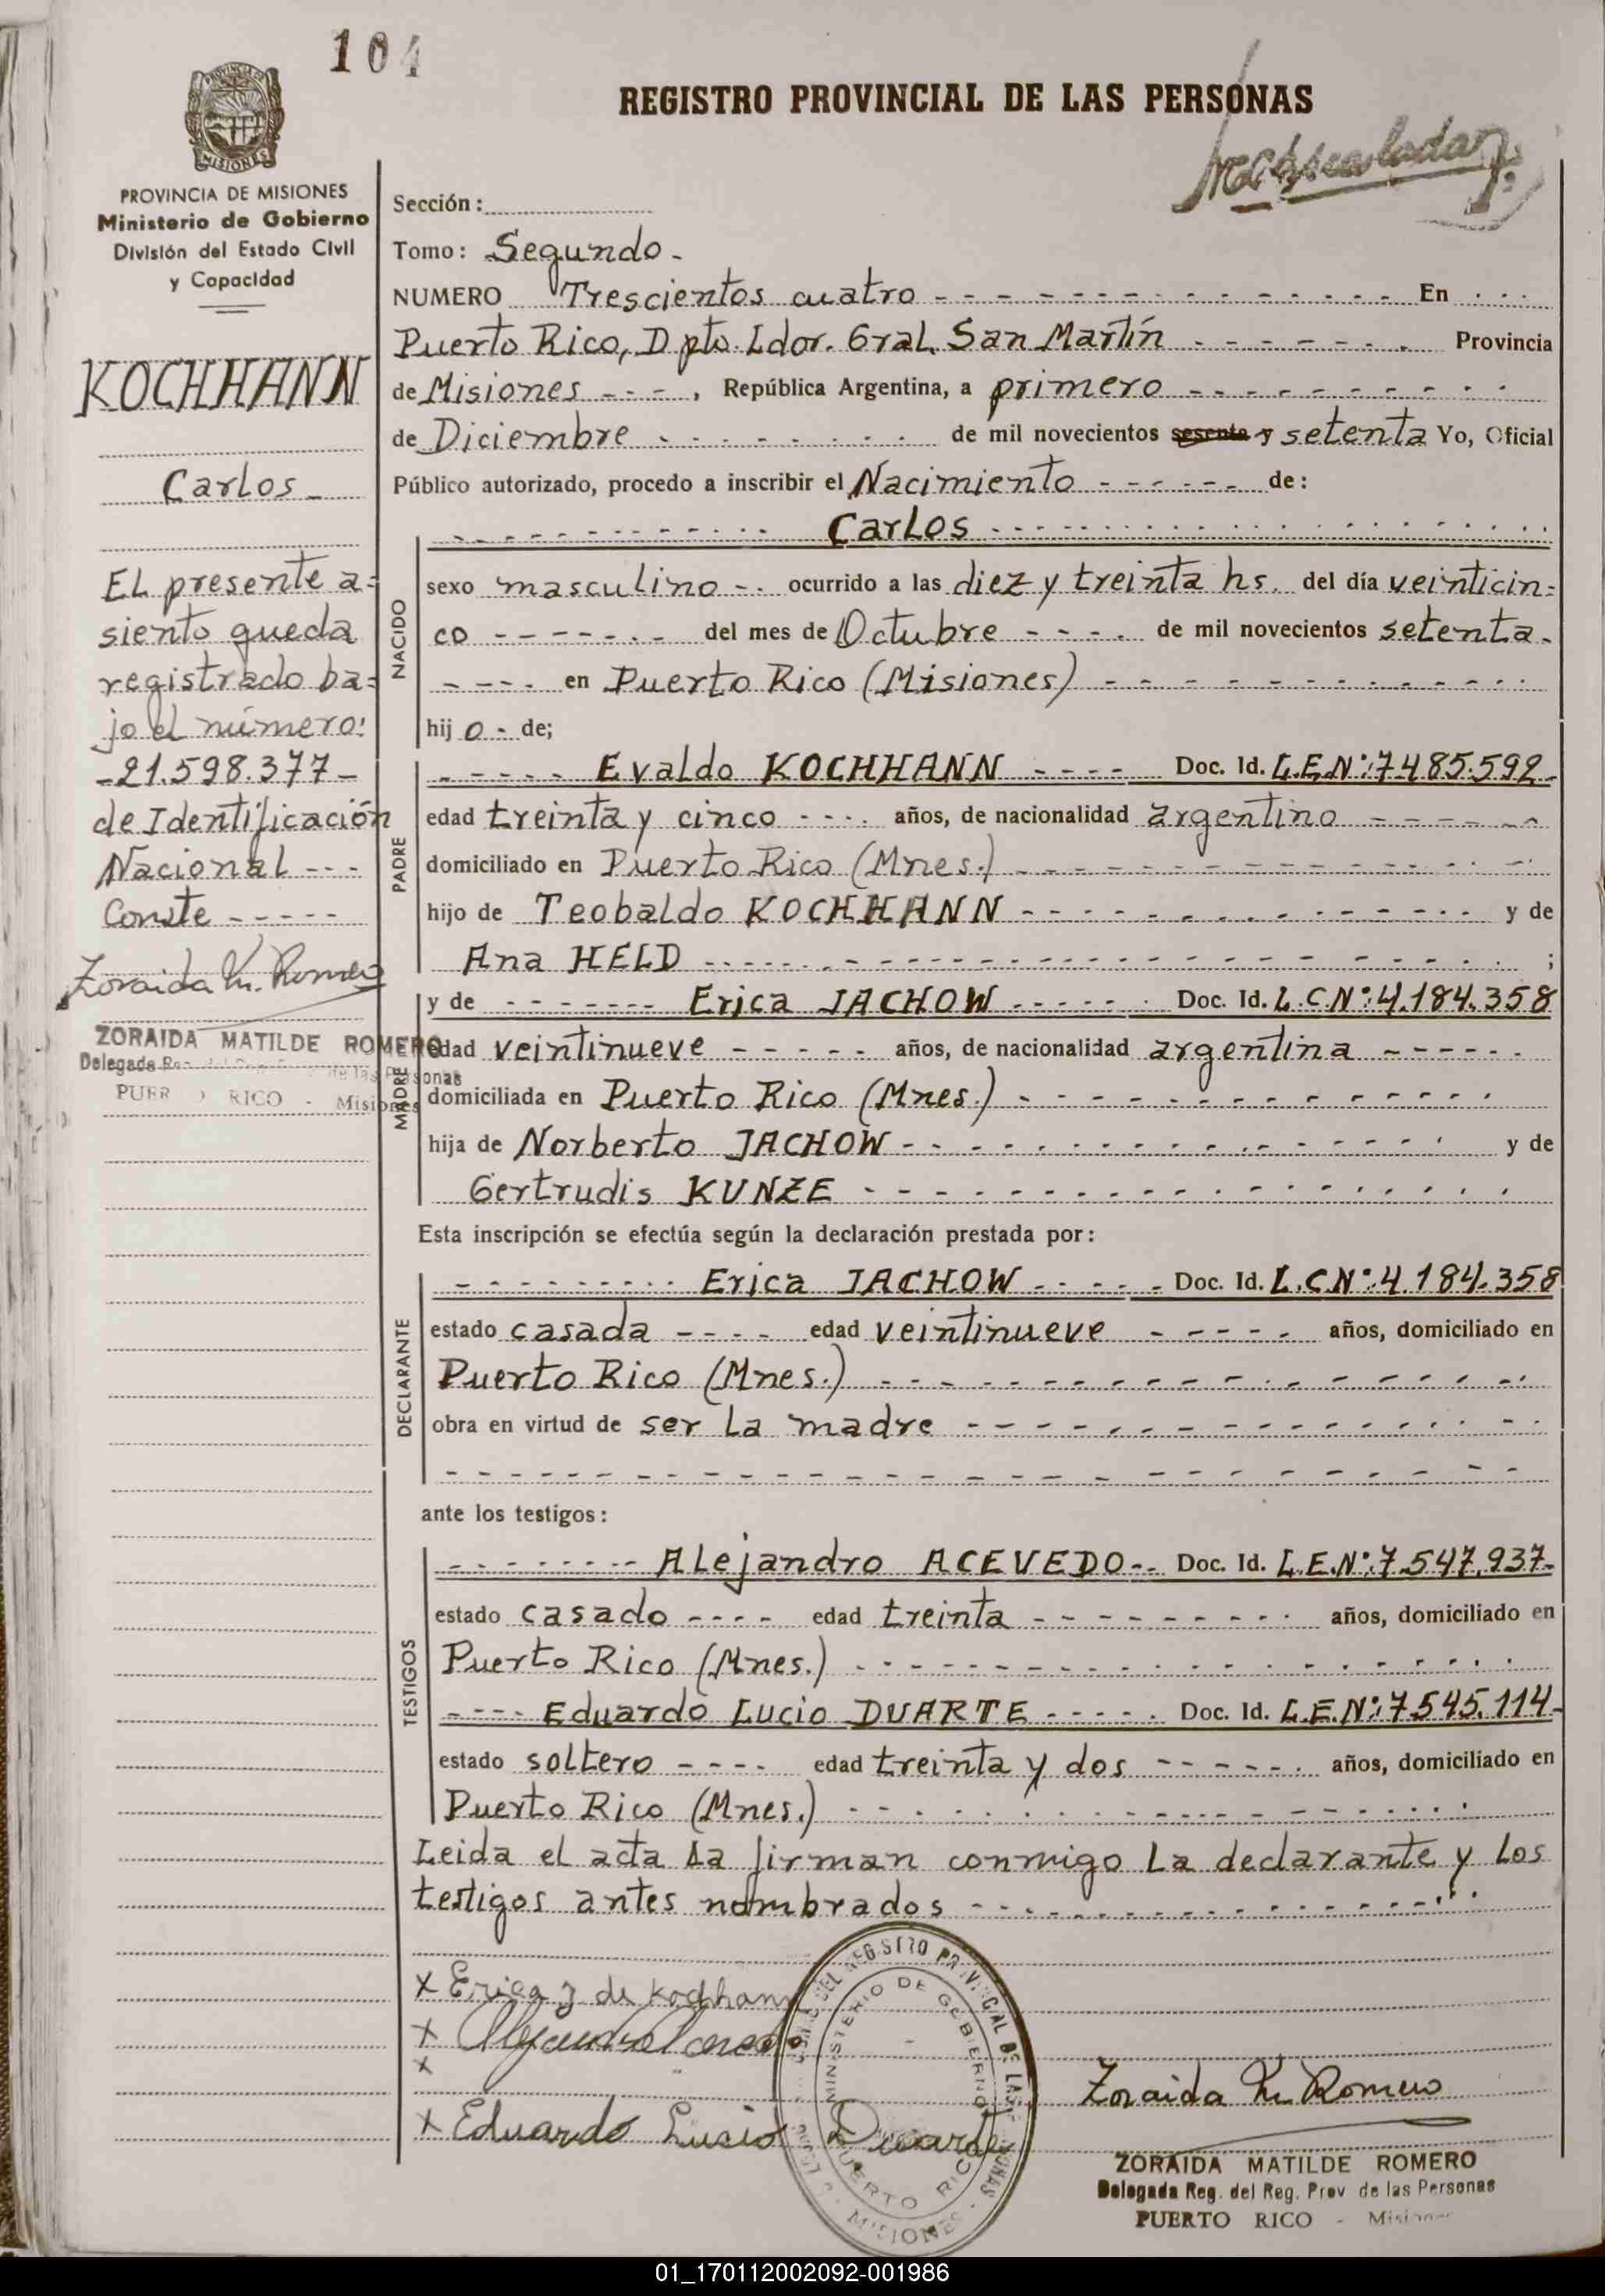 104
REGISTRO PROVINCIAL DE LAS PERSONAS
MISIONES
PROVINCIA DE MISIONES
Ministerio de Gobierno
División del Estado Civil
y Capacidad
KOCHHANN
Carlos -
El presente a=
siento queda
registrado ba=
jo el número:
- 21.598.377 -
de Identificación
Nacional ---
Conste -----
Zoraida M. Romero
ZORAIDA MATILDE ROMERO
Delegada de las Personas
PUERTO RICO - Misiones
Sección:
Tomo: Segundo -
NUMERO Trescientos cuatro - - - En
Puerto Rico, Dpto. Ldor. Gral. San Martín - - - Provincia
de Misiones - - -, República Argentina, a primero - - -
de Diciembre - - - de mil novecientos sesenta y setenta Yo, Oficial
Público autorizado, procedo a inscribir el Nacimiento - - - de:
Carlos
NACIDO
sexo masculino -. ocurrido a las diez y treinta hs. del día veinticin=
co - - - del mes de Octubre - - - de mil novecientos setenta -
- - - en Puerto Rico (Misiones) - - -
hij o - de;
PADRE
Evaldo KOCHHANN - - - Doc. Id. L.E.Nº: 7.485.592 -
edad treinta y cinco - - - años, de nacionalidad argentino - - -
domiciliado en Puerto Rico (Mnes.) - - -
hijo de Teobaldo KOCHHANN - - - y de
Ana HELD - - - ;
MADRE
y de - - - Erica JACHOW - - - Doc. Id. L.C.Nº: 4.184.358
edad veintinueve - - - años, de nacionalidad argentina - - -
domiciliada en Puerto Rico (Mnes.) - - -
hija de Norberto JACHOW - - - y de
Gertrudis KUNZE - - -
Esta inscripción se efectúa según la declaración prestada por:
DECLARANTE
- - - Erica JACHOW - - - Doc. Id. L.C.Nº: 4.184.358
estado casada - - - edad veintinueve - - - años, domiciliado en
Puerto Rico (Mnes.) - - -
obra en virtud de ser la madre - - -
ante los testigos:
TESTIGOS
- - - Alejandro ACEVEDO - - Doc. Id. L.E.Nº: 7.547.937 -
estado casado - - - edad treinta - - - años, domiciliado en
Puerto Rico (Mnes.) - - -
- - - Eduardo Lucio DUARTE - - - Doc. Id. L.E.Nº: 7.545.114 -
estado soltero - - - edad treinta y dos - - - años, domiciliado en
Puerto Rico (Mnes.) - - -
Leida el acta la firman conmigo la declarante y los
testigos antes nombrados - - -
x Erica J de Kochhann
x Alejandro Acevedo
x
x Eduardo Lucio Duarte
DEL REGISTRO PROVINCIAL DE LAS PERSONAS
MINISTERIO DE GOBIERNO
PUERTO RICO
MISIONES
Zoraida M. Romero
ZORAIDA MATILDE ROMERO
Delegada Reg. del Reg. Prov de las Personas
PUERTO RICO - Misiones
01_170112002092-001986